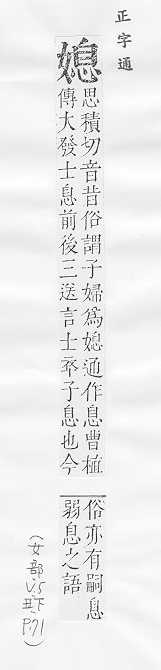 正字通
媳
思積切音昔俗謂子婦爲媳通作息曹植
傳大發士息前後三送言士卒子息也今
俗亦有嗣息
弱息之語
(女部 V.5
丑下
P.71)